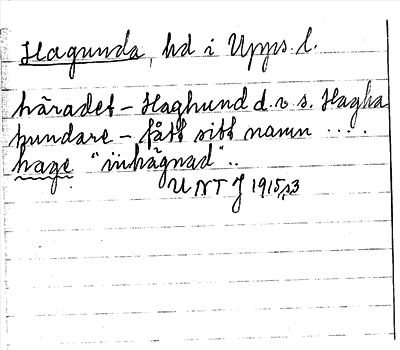 Hagunda, hd i Upps. l.
häradet - Haghund d.v.s. Hagha
hundare - fått sitt namn ....
hage "inhägnad"..
UNT J 1915, s 3